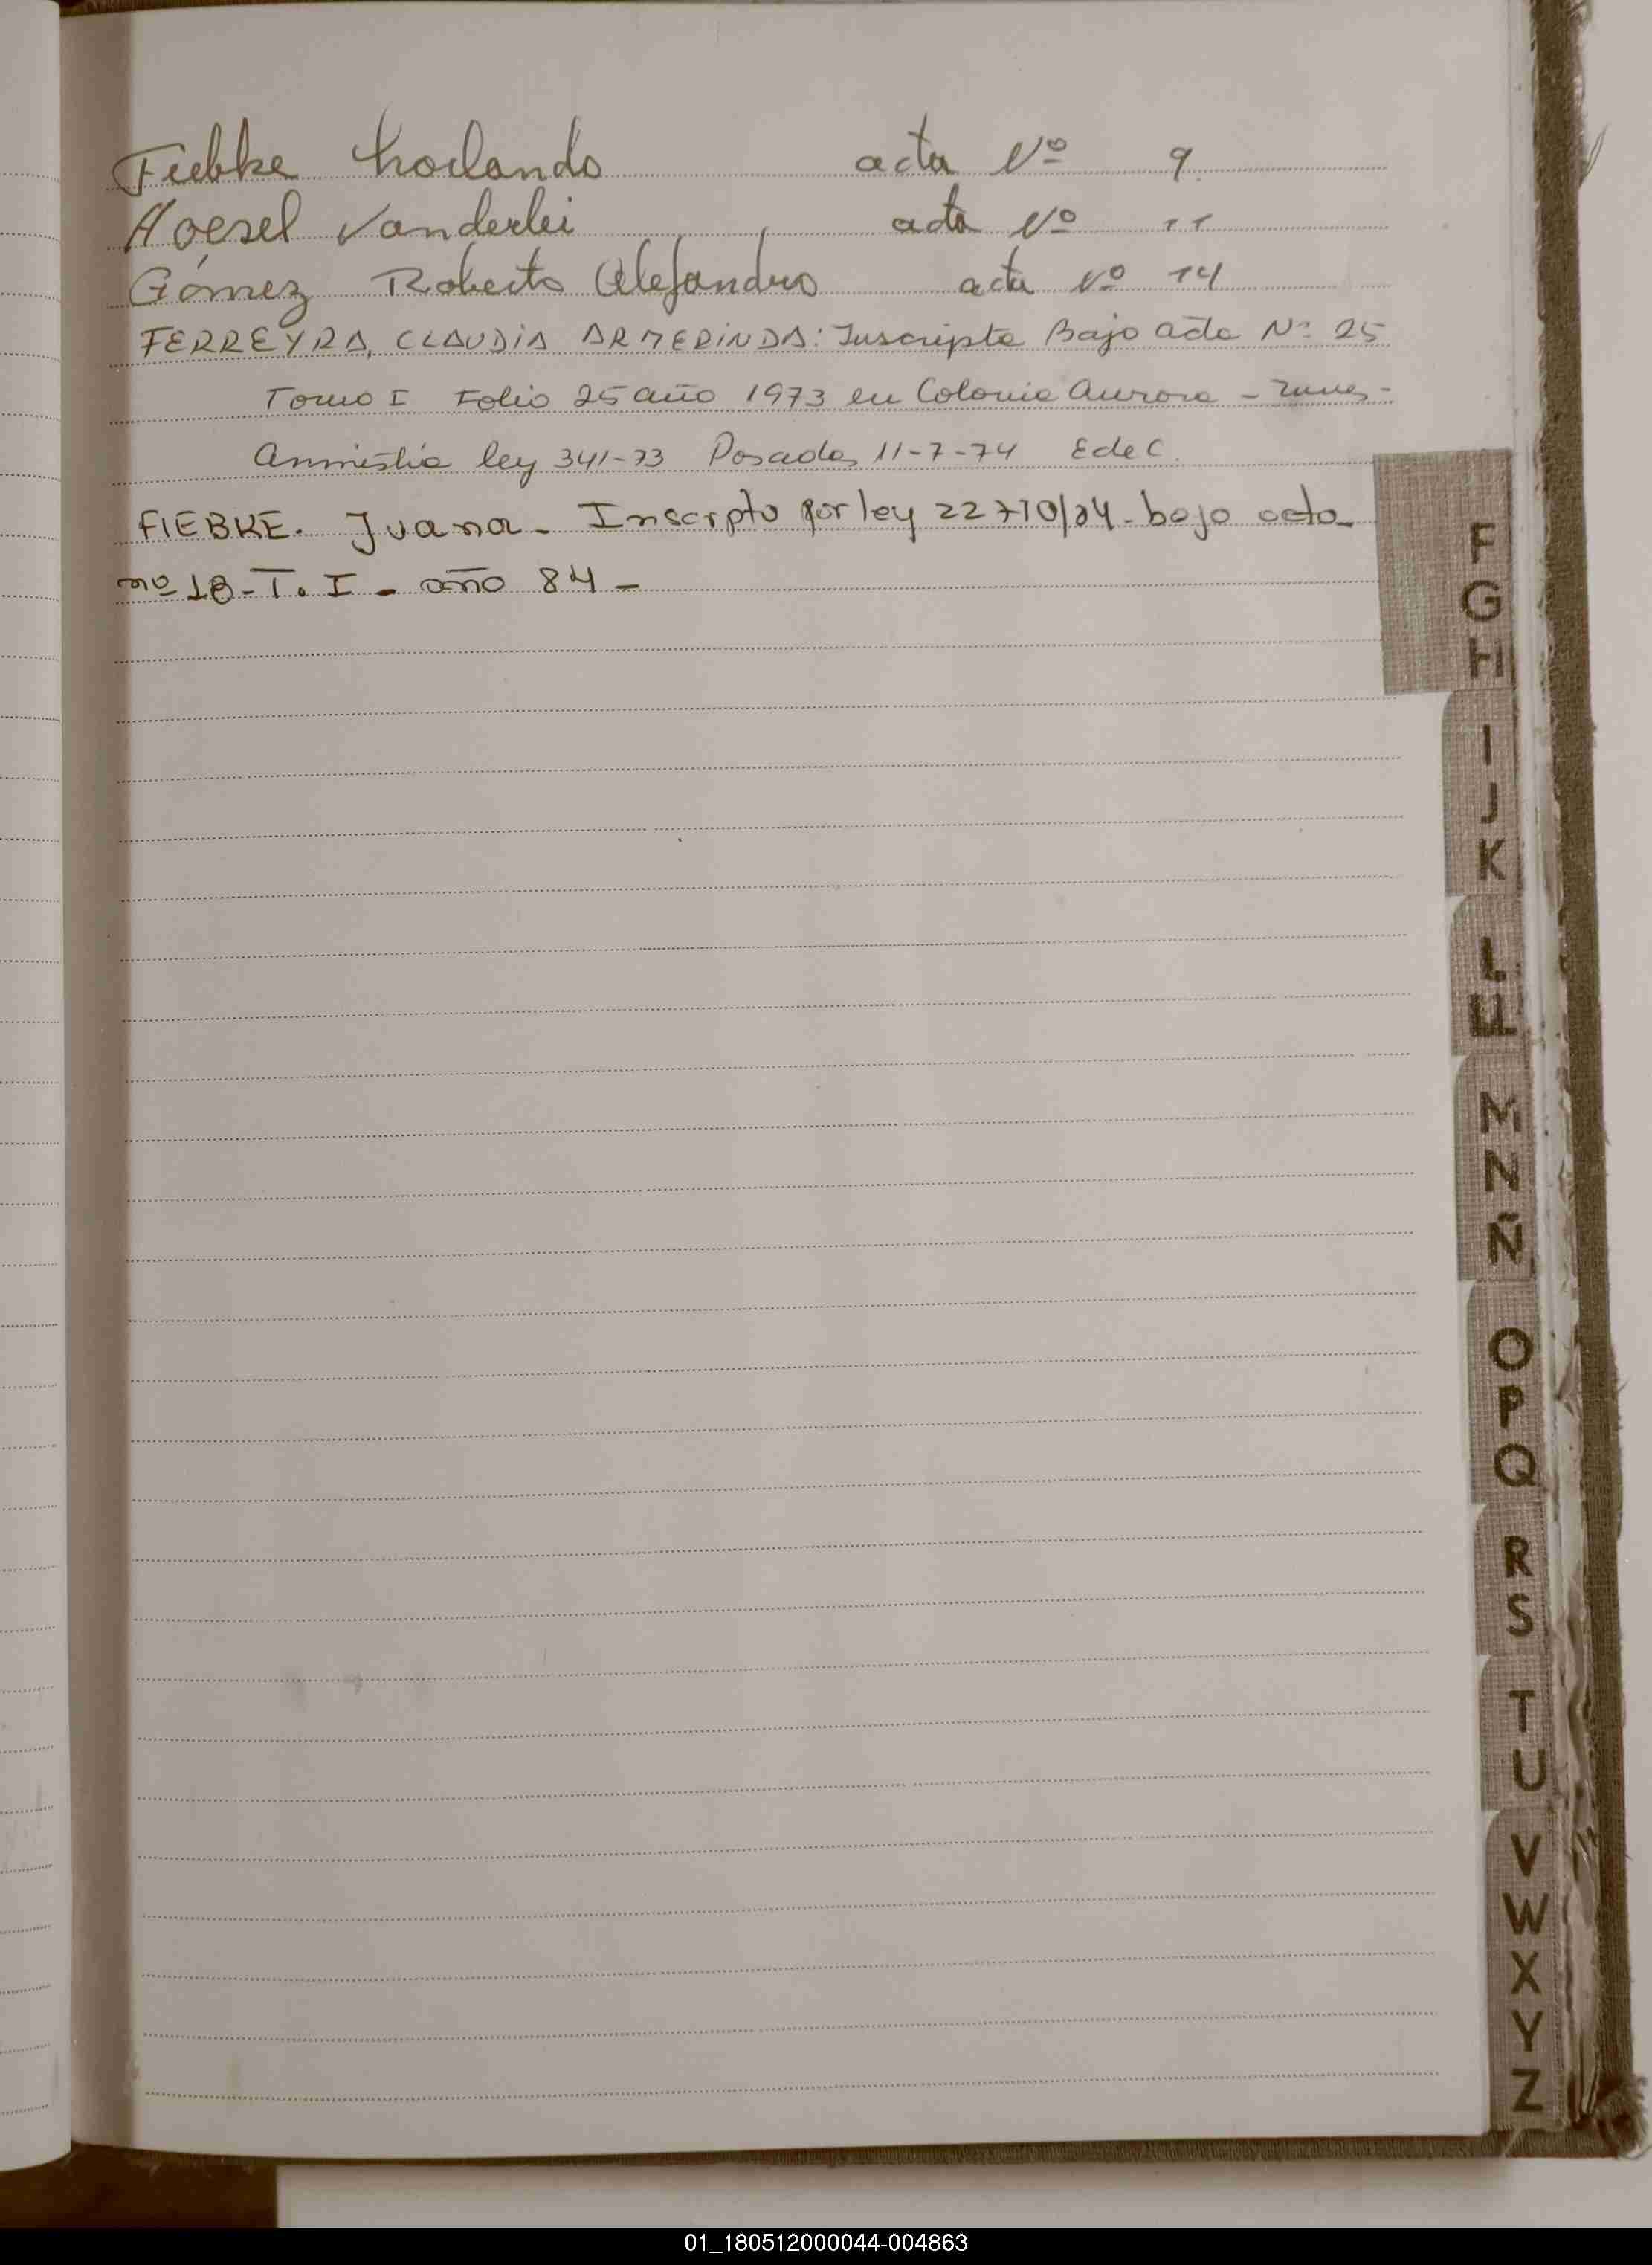 Fiebke Horlando acta Nº 9
Hoesel Vanderlei acta Nº 11
Gómez Roberto Alejandro acta Nº 14
FERREYRA, CLAUDIA ARMERINDA: Inscripta Bajo acta Nº 25
Tomo I Folio 25 año 1973 en Colonia Aurora -
Amnistía ley 341-73 Posadas 11-7-74 EdeC.
FIEBKE. Juana - Inscripto por ley 22710/84 - bajo acta
nº 18 - T. I - año 84 -
F
G
H
I
J
K
L
LL
M
N
Ñ
O
P
Q
R
S
T
U
V
W
X
Y
Z
01_180512000044-004863